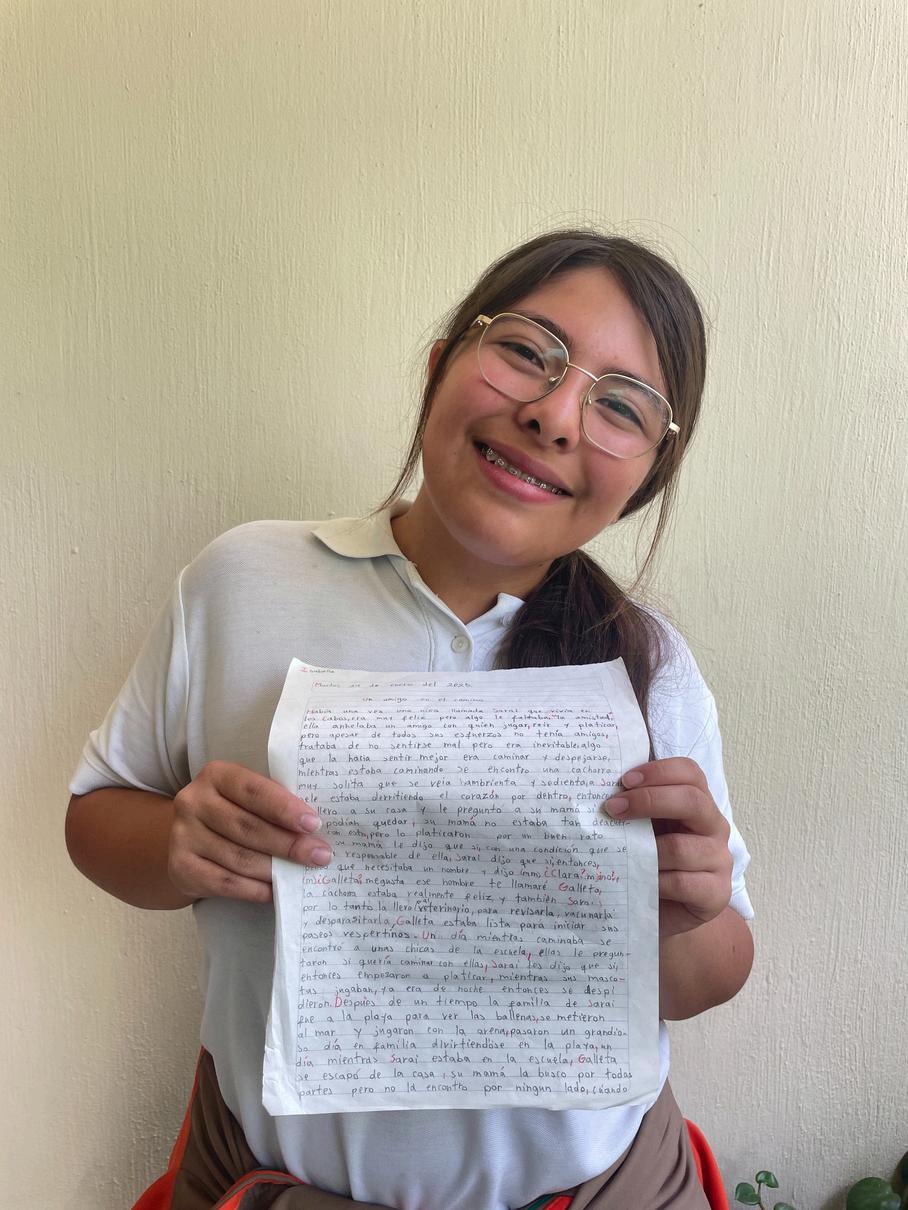 Isabella
Martes 14 de enero del 2025
Un amigo en el camino
Había una vez una niña llamada Sarai que vivía en
los Cabos, era muy feliz pero algo le faltaba, "la amistad,
ella anhelaba un amigo con quien jugar, reír y platicar,
pero apesar de todos sus esfuerzos no tenía amigos,
trataba de no sentirse mal pero era inevitable, algo
que la hacía sentir mejor era caminar y despejarse,
mientras estaba caminando se encontro una cachorra
muy solita que se veía hambrienta y sedienta, a Sarai
se le estaba derritiendo el corazón por dentro, entonces
llevo a su casa y le preguntó a su mamá si
podían quedar, su mamá no estaba tan deacuer-
con esto, pero lo platicaron por un buen rato
su mamá le dijo que sí, con una condición que se
responsable de ella, Sarai dijo que si, entonces,
que necesitaba un nombre y dijo ¡mm, ¿Clara? m¡no!,
¡m¡Galleta!, megusta ese nombre te llamaré Galleta,
la cachorra estaba realmente feliz y también Sarai
por lo tanto la llevo al veterinario, para revisarla, vacunarla
y desparasitarla, Galleta estaba lista para iniciar sus
paseos vespertinos. Un día mientras caminaba se
encontró a unas chicas de la escuela, ellas le pregun-
taron si quería caminar con ellas, Sarai les dijo que si,
entonces empezaron a platicar, mientras sus masco-
tas jugaban, ya era de noche entonces se despi
dieron. Después de un tiempo la familia de Sarai
fue a la playa para ver las ballenas, se metieron
al mar y jugaron con la arena, pasaron un grandio-
so día en familia divirtiéndose en la playa, un
día mientras Sarai estaba en la escuela, Galleta
se escapó de la casa, su mamá la busco por todas
partes pero no la encontro por ningun lado, cuando